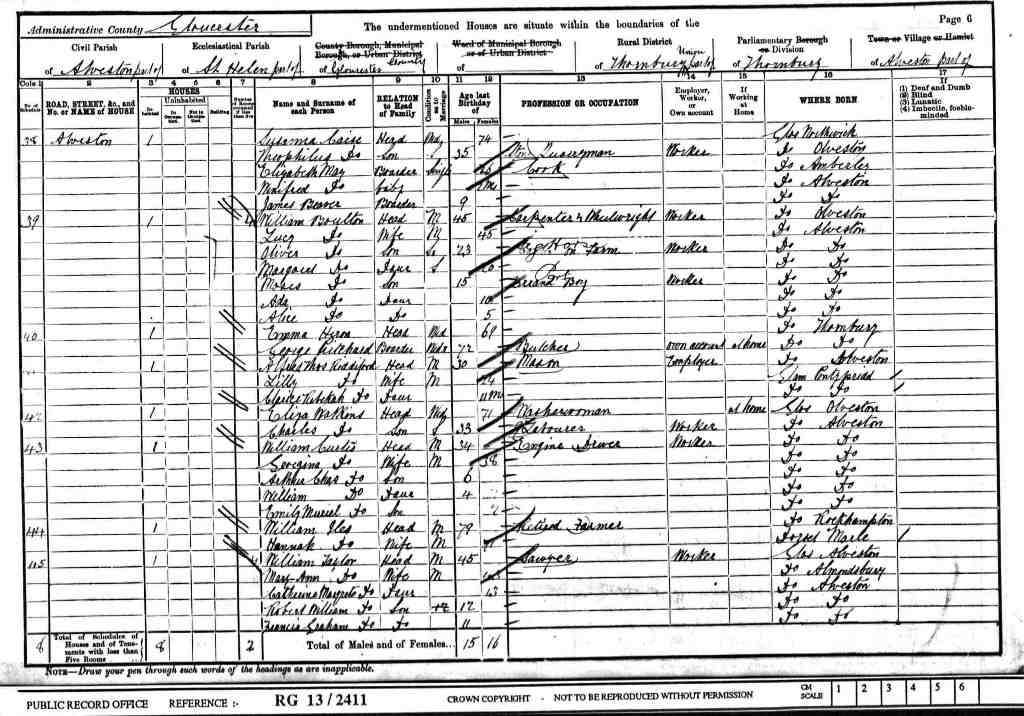 Administrative County Gloucester
The undermentioned Houses are situate within the boundaries of the
Page 6
Civil Parish
Ecclesiastical Parish
County Borough, Municipal Borough, or Urban District
Ward of Municipal Borough or of Urban District
Rural District
Parliamentary Borough or Division
Town or Village or Hamlet
of Alveston part of
of St Helen part of
of Gloucester County
of
of Thornbury part of Union
of Thornbury
of Alveston part of
Cols. 1 2 3 4 5 6 7 8 9 10 11 12 13 14 15 16 17
No. of Schedule
ROAD, STREET, &c., and No. or NAME of HOUSE
HOUSES
Inhabited
Uninhabited
In Occupation
Not in Occupation
Building
Name and Surname of each Person
RELATION to Head of Family
Condition as to Marriage
Age last Birthday of
Males
Females
PROFESSION OR OCCUPATION
Employer, Worker, or Own account
If Working at Home
WHERE BORN
If
(1) Deaf and Dumb
(2) Blind
(3) Lunatic
(4) Imbecile, feeble-minded
38 Alveston 1 Susanna Head Wid 74 Glos
Theophilus Do Son S 35 Quarryman Worker Do Olveston
Elizabeth May Boarder Single Cook Do Amberley
Winifred Do baby Do Alveston
James Beaver Boarder 9 Do Do
39 1 William Boulton Head M 45 Carpenter & Wheelwright Worker Do Olveston
Lucy Do Wife M 45 Do Alveston
Oliver Do Son S 23 on Farm Worker Do Do
Margaret Do Daur S 20 Do Do
Moses Do Son 15 Errand Boy Worker Do Do
Ada Do Daur 10 Do Do
Alice Do Do 5 Do Do
40 1 Emma Head Wid 69 Do Thornbury
George Boarder Wdr 72 Butcher own account at home Do Do
1 Alfred Thos Riddiford Head M 30 Mason Employer Do Alveston
Lilly Do Wife M 24 Glam Pontypridd
Clarice Rebekah Do Daur 11 m Do Do
42 1 Eliza Watkins Head Wid 71 Washerwoman at home Glos Olveston
Charles Do Son S 33 Labourer Worker Do Alveston
43 1 William Curtis Head M 34 Engine Driver Worker Do Do
Georgina Do Wife M 38 Do Do
Arthur Chas Do Son 6 Do Do
William Do Daur 4 Do Do
Emily Muriel Do Son 2 Do Do
44 1 William Iles Head M 79 Retired Farmer Do Rockhampton
Hannah Do Wife M Dorset
45 1 William Taylor Head M 45 Sawyer Worker Glos Alveston
Mary Ann Do Wife M Do Almondsbury
Catherine Do Daur 13 Do Alveston
Robert William Do Son 12 Do Do
Francis Graham Do Do 11 Do Do
8 Total of Schedules of Houses and of Tenements with less than Five Rooms 8 2 Total of Males and of Females... 15 16
NOTE—Draw your pen through such words of the headings as are inapplicable.
PUBLIC RECORD OFFICE REFERENCE :- RG 13/2411 CROWN COPYRIGHT - NOT TO BE REPRODUCED WITHOUT PERMISSION CM SCALE 1 2 3 4 5 6